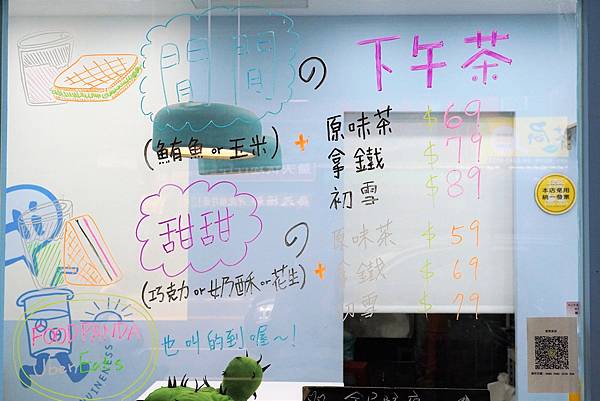 閒閒の下午茶
(鮪魚 or 玉米) +
原味茶 $69
拿鐵 $79
初雪 $89
甜甜の
(巧克力 or 奶酥 or 花生) +
原味茶 $59
拿鐵 $69
初雪 $79
FOODPANDA
Uber Eats
也叫的到喔~!
本店使用
統一發票